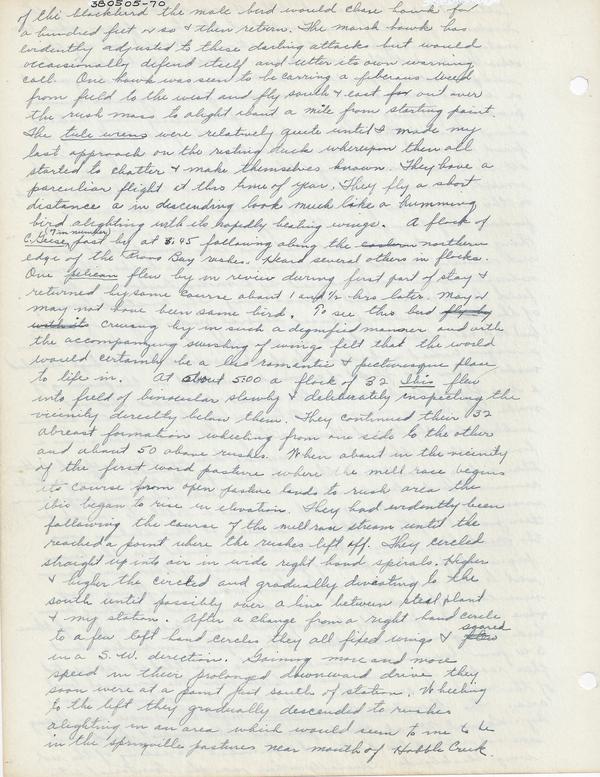 380505-70
of the blackbird the male bird would chase hawk for
a hundred feet or so & then return. The marsh hawk has
evidently adjusted to these darting attacks but would
occassionally defend itself and utter its own warning
call. One hawk was seen to be carring a fiberous weed
from field to the west and fly south & east for out over
the rush mass to alight about a mile from starting point.
The tule wrens were relatively quite until I made my
last approach on the resting duck whereupon they all
started to chatter & make themselves known. They have a
pereculiar flight at this time of year. They fly a short
distance a in descending look much like a humming
bird alighting with its rapidly beating wings. A flock of
C. Geese, 7 in number, past by at 3:45 following along the eastern northern
edge of the Provo Bay rushes. Heard several others in flocks.
One pelican flew by in review during first part of stay &
returned by some course about 1 and ½ hrs later. May or
may not have been same bird. To see this bird fly by
with its cruising by in such a dignified manner and with
the accompanying swishing of wings felt that the world
would certainly be a less romantic & picturesque place
to life in. At about 5:00 a flock of 32 Ibis flew
into field of binocular slowly & deliberately inspecting the
vicinity directly below them. They continued their 32
abreast formation wheeling from one side to the other
and about 50 above rushes. When about in the vicinity
of the first word pasture where the mill race begins
its course from open pasture lands to rush area the
ibis began to rise in elevation. They had evidently been
following the course of the millrace stream until the
reached a point where the rushes left off. They circled
straight up into air in wide right hand spirals. Higher
& higher the circled and gradually diverting to the
south until possibly over a line between steel plant
& my station. After a change from a right hand circle
to a few left hand circles they all fixed wings & flew soared
in a S.W. direction. Gaining more and more
speed in their prolonged downward drive they
soon were at a point just south of station. Wheeling
to the left they gradually descended to rushes
alighting in an area which would seem to me to be
in the springville pastures near mouth of Hobble Creek.